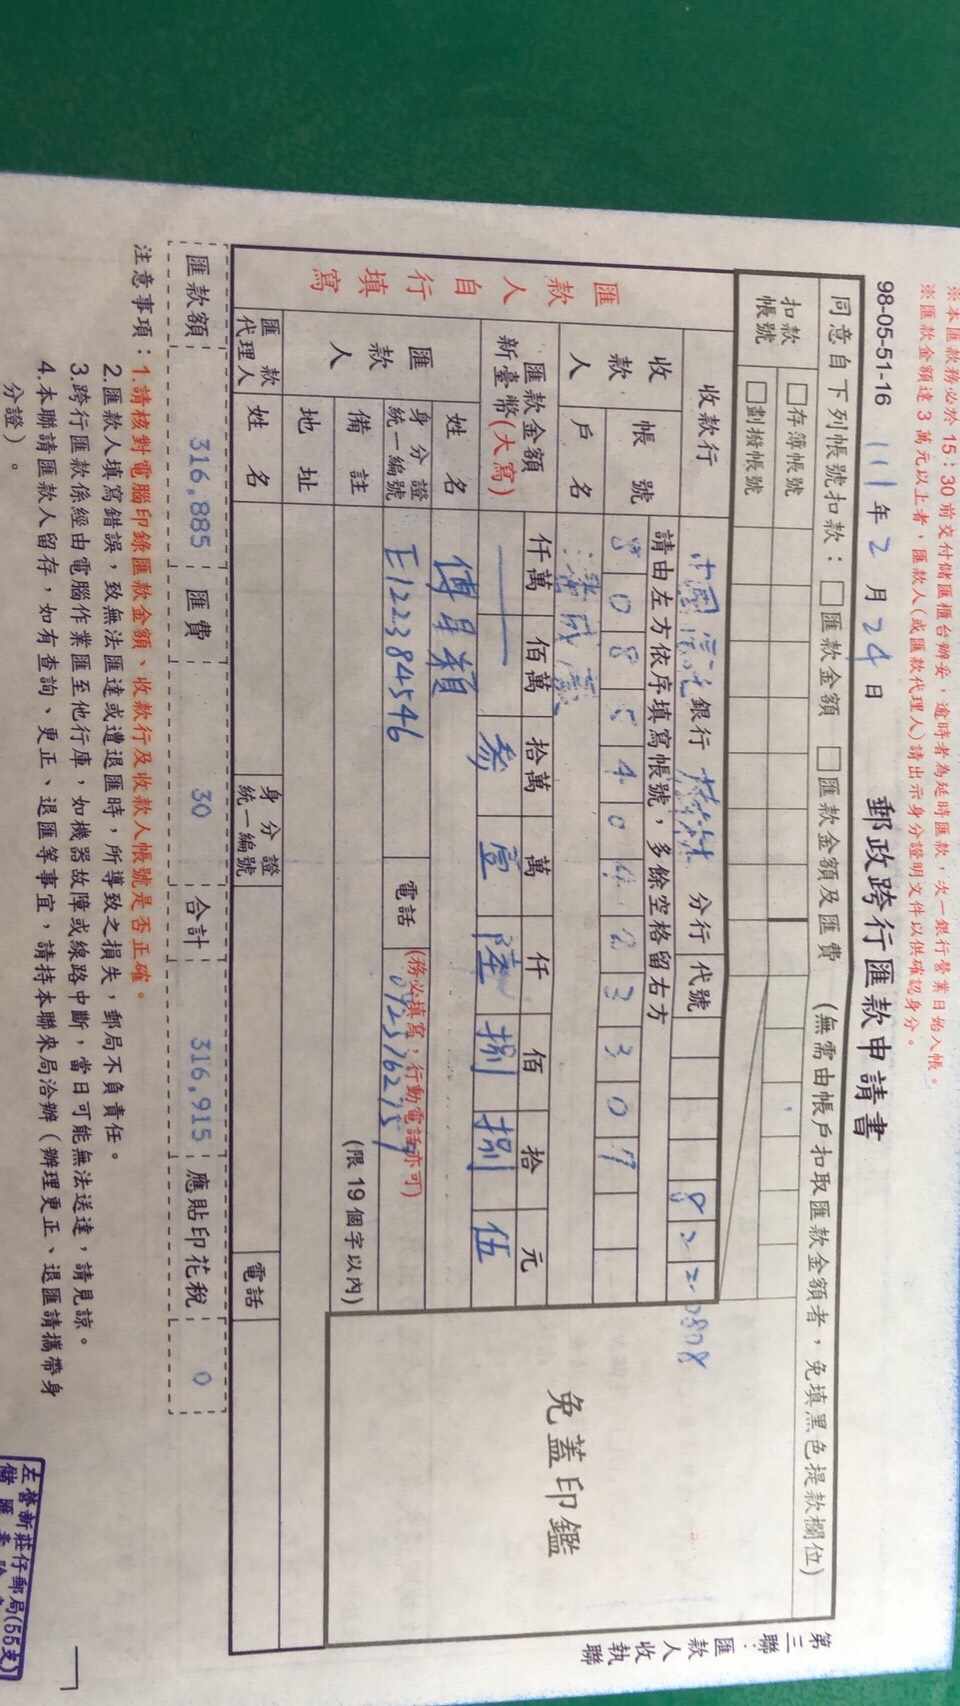 ※本匯款務必於15:30前交付儲匯櫃台辦妥，逾時者為延時匯款，次一銀行營業日始入帳。
※匯款金額達3萬元以上者，匯款人(或匯款代理人)請出示身分證明文件以供確認身分。
98-05-51-16 111年2月24日 郵政跨行匯款申請書
同意自下列帳號扣款：□匯款金額 □匯款金額及匯費 (無需由帳戶扣取匯款金額者，免填黑色提款欄位)
扣款帳號 □存簿帳號
□劃撥帳號
匯款人自行填寫
收款行 中國信託銀行 分行 代號 822 0808
收款人 帳號 請由左方依序填寫帳號，多餘空格留右方
戶名
匯款金額 新臺幣(大寫) 仟萬 佰萬 拾萬 萬 仟 佰 拾 元
參 壹 陸 捌 捌 伍
匯款人 姓名
身分證統一編號 E122384546 電話 (務必填寫；行動電話亦可)
備註 (限19個字以內)
地址
匯款代理人 姓名 身分證統一編號 電話
免蓋印鑑
第三聯：匯款人收執聯
匯款額 316,885 匯費 30 合計 316,915 應貼印花稅 0
注意事項：1.請核對電腦印錄匯款金額、收款行及收款人帳號是否正確。
2.匯款人填寫錯誤，致無法匯達或遭退匯時，所導致之損失，郵局不負責任。
3.跨行匯款係經由電腦作業匯至他行庫，如機器故障或線路中斷，當日可能無法送達，請見諒。
4.本聯請匯款人留存，如有查詢、更正、退匯等事宜，請持本聯來局洽辦（辦理更正、退匯請攜帶身
分證）。
左營新莊仔郵局(55支)